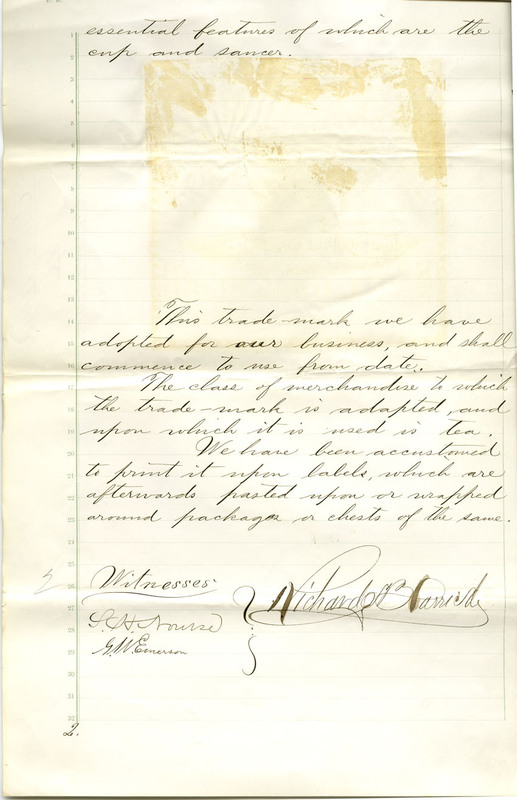 essential features of which are the
cup and saucer.
This trade-mark we have
adopted for our business, and shall
commence to use from date.
The class of merchandise to which
the trade-mark is adapted, and
upon which it is used is tea.
We have been accustomed
to print it upon labels, which are
afterwards pasted upon or wrapped
around packages or chests of the same.
Witnesses:
Richard
S. H. Nourse
G. W. Emerson
2.